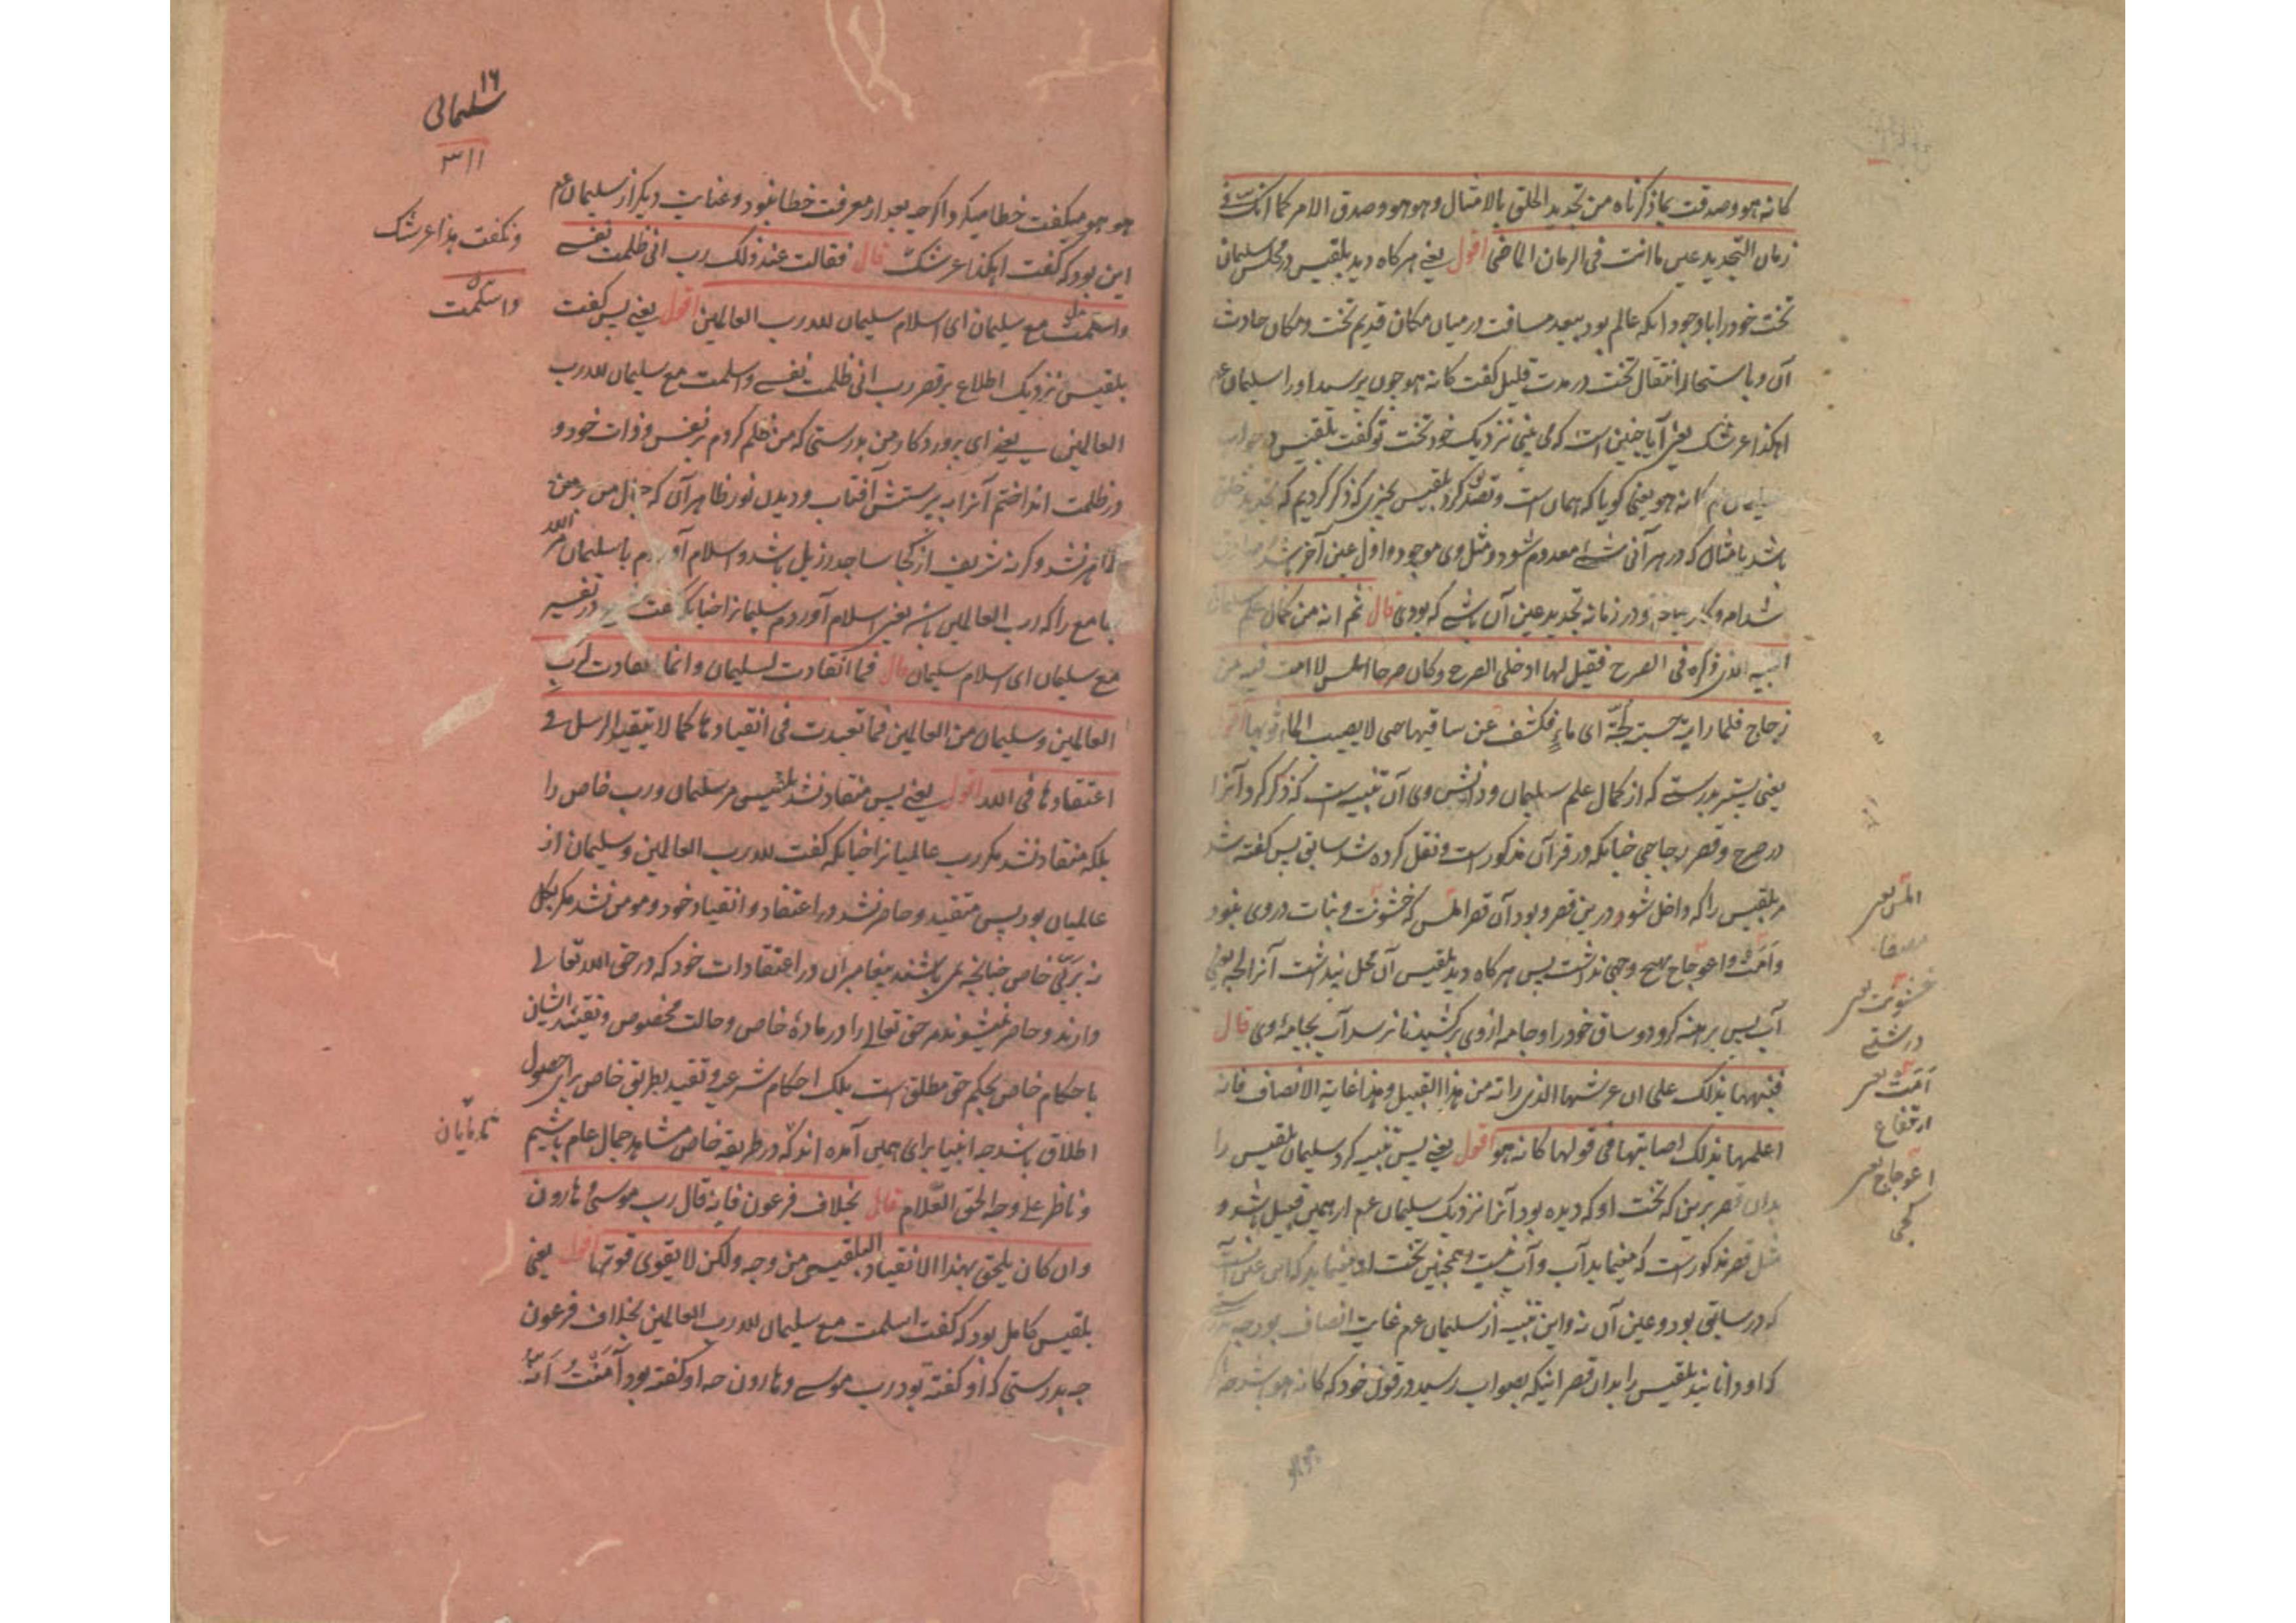 کانه هو و صدقت بما ذکرناه من تجدید الخلق بالامثال و هو هو و صدق الامر کما انک فی
زمان التجدید عین ما انت فی الزمان الماضی اقول یعنی هرکاه دید بلقیس در مجلس سلیمان
تخت خود را با وجود انکه عالم بود ببعد مسافت در میان مکان قدیم تخت و مکان حادث
آن و باستحاله انتقال تخت در مدت قلیل کفت کانه هو چون پرسید او را سلیمان عم
اهکذا عرشک یعنی آیا چنین است که می بینی نزدیک خود تخت تو کفت بلقیس در جواب
سلیمان عم کانه هو یعنی کویا که همان است و تصدیق کرد بلقیس بچیزی که ذکر کردیم که تجدید خلق
باشد بامثال که در هر آنی شئ معدوم شود و مثل وی موجود و اول عین آخر باشد
و در زمانه تجدید عین آن باشی که بودی قال ثم انه من کمال علم سلیمان
التنبیه الذی ذکره فی الصرح فقیل لها ادخلی الصرح و کان صرحا املس لا امت فیه من
زجاج فلما راته حسبته لجّة ای ماءٍ فکشفت عن ساقیها حتی لا یصیب الماء ثوبها اقول
یعنی پستر بدرستی که از کمال علم سلیمان و دانش وی آن تنبیه است که ذکر کرد آنرا
در صرح و قصر زجاجی چنانکه در قرآن مذکور است و نقل کرده شد سابق پس کفته شد
مر بلقیس را که داخل شو درین قصر و بود آن قصر املس که خشونت و نبات در وی نبود
و اَمَت و اعوجاج هیچ وجهی نداشت پس هرکاه دید بلقیس آن محل پنداشت آنرا لجه یعنی
آب پس برهنه کرد دو ساق خود را و جامه از وی برکشید تا نرسد آب بجامهٔ وی قال
فنبهها بذلک علی ان عرشها الذی راته من هذا القبیل و هذا غایة الانصاف فانه
اعلمها بذلک اصابتها فی قولها کانه هو اقول یعنی پس تنبیه کرد سلیمان بلقیس را
بدان قصر برین که تخت او که دیده بود آنرا نزدیک سلیمان عم از همین قبیل باشد و
مثل قصر مذکور است که مینماید آب و آب نیست و همچنین تخت او مینماید که این عین آنست
که در سابق بود و عین آن نه و این تنبیه از سلیمان عم غایت انصاف بود چه بدرستی
که او دانانید بلقیس را بدان قصر اینکه بصواب رسید در قول خود که کانه هو باشد چه اگر
املس یعنی
مصفا
خشونت یعنی
درشتی
اَمَت یعنی
ارتفاع
اعوجاج یعنی
کجی
هو هو
۱۶
سلیمانی
۳۱۱
هو هو میکفت خطا میکرد اکرچه بعد از معرفت خطا نبود و عنایت دیکر از سلیمان عم
این بود که کفت اهکذا عرشک قال فقالت عند ذلک رب انی ظلمت نفسی
و اسلمت مع سلیمان ای اسلام سلیمان لله رب العالمین اقول یعنی پس کفت
بلقیس نزدیک اطلاع بر قصر رب انی ظلمت نفسی و اسلمت مع سلیمان لله رب
العالمین یعنی ای پروردکار من بدرستی که من ظلم کردم بر نفس و ذات خود و
در ظلمت انداختم آنرا به پرستش آفتاب و دیدن نور ظاهر آن که
ظاهر نشد و کرنه شریف از کجا ساجد رذیل باشد و اسلام آوردم با سلیمان مر الله
جامع را که رب العالمین باشد یعنی اسلام آوردم سلیمانرا چنانکه در تفسیر
مع سلیمان ای اسلام سلیمان قال فما انقادت لسلیمان و انما انقادت لرب
العالمین و سلیمان من العالمین فما تقیدت فی انقیادها کما لا یتقید الرسل فی
اعتقادها فی الله اقول یعنی پس منقاد نشد بلقیس مر سلیمان و رب خاص را
بلکه منقاد نشد مکر رب عالمیانرا چنانکه کفت لله رب العالمین و سلیمان از
عالمیان بود پس متقید و حاصر نشد در اعتقاد و انقیاد خود و مومن نشد مکر بکل
نه بربّی خاص چنانچه می باشند پیغامبران در اعتقادات خود که در حق الله تعالی
دارند و حاصر نمیشوند مر حق تعالی را در مادهٔ خاص و حالت مخصوص و تقید ایشان
باحکام خاص بحکم حق مطلق است بلک احکام شرعی و تقید بطریق خاص برای حصول
اطلاق باشد چه انبیا برای همین آمده اند که در طریقه خاص مشاهد جمال عام باشیم
و ناظر علی وجه الحق العلام قال بخلاف فرعون فانه قال رب موسی و هارون
و ان کان یلحق بهذا الانقیاد البلقیسی من وجه و لکن لا یقوی قوتها اقول یعنی
بلقیس کامل بود که کفت اسلمت مع سلیمان لله رب العالمین بخلاف فرعون
چه بدرستی که او کفته بود رب موسی و هارون چه او کفته بود آمَنْتُ اَنَّهُ
و نکفت هذا عرشک
و اسلمت